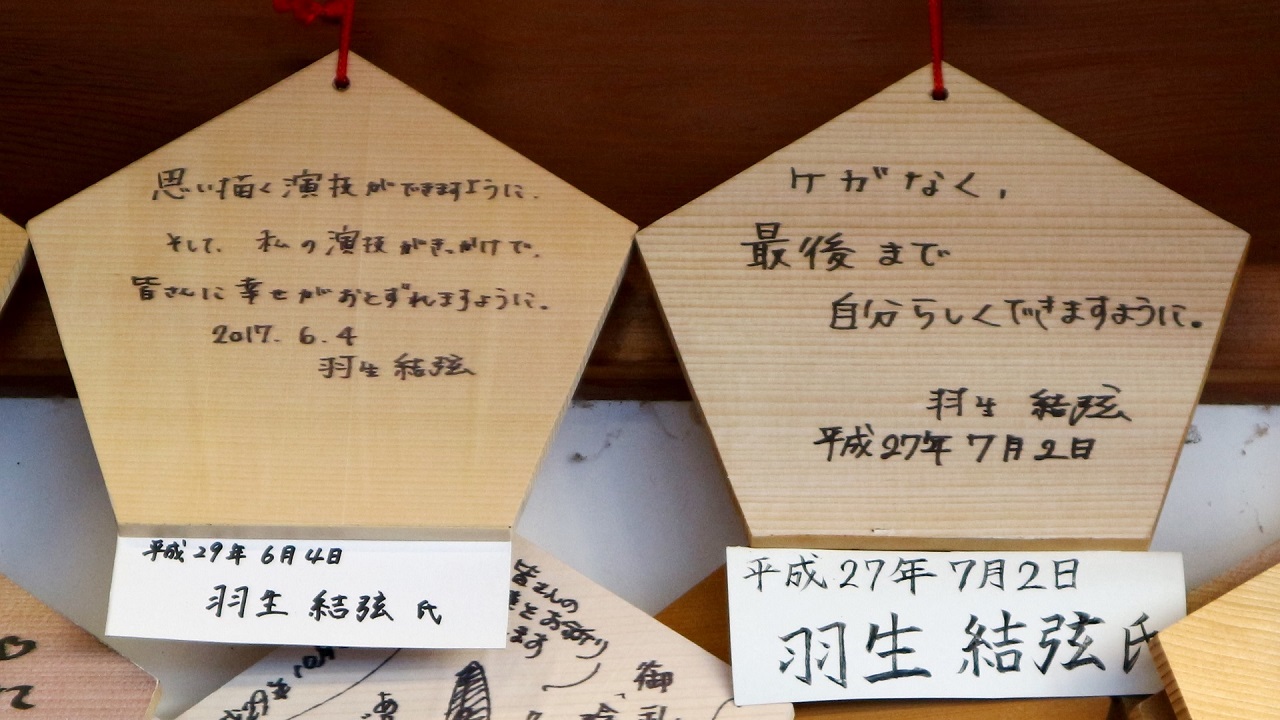 思い描く演技ができますように.
そして、私の演技がきっかけで、
皆さんに幸せがおとずれますように。
2017. 6. 4
羽生 結弦
平成29年 6月4日
羽生 結弦 氏
ケガなく,
最後まで
自分らしくできますように。
羽生 結弦
平成27年7月2日
平成27年7月2日
羽生 結弦氏
皆さんの
とお祈り
ます
御